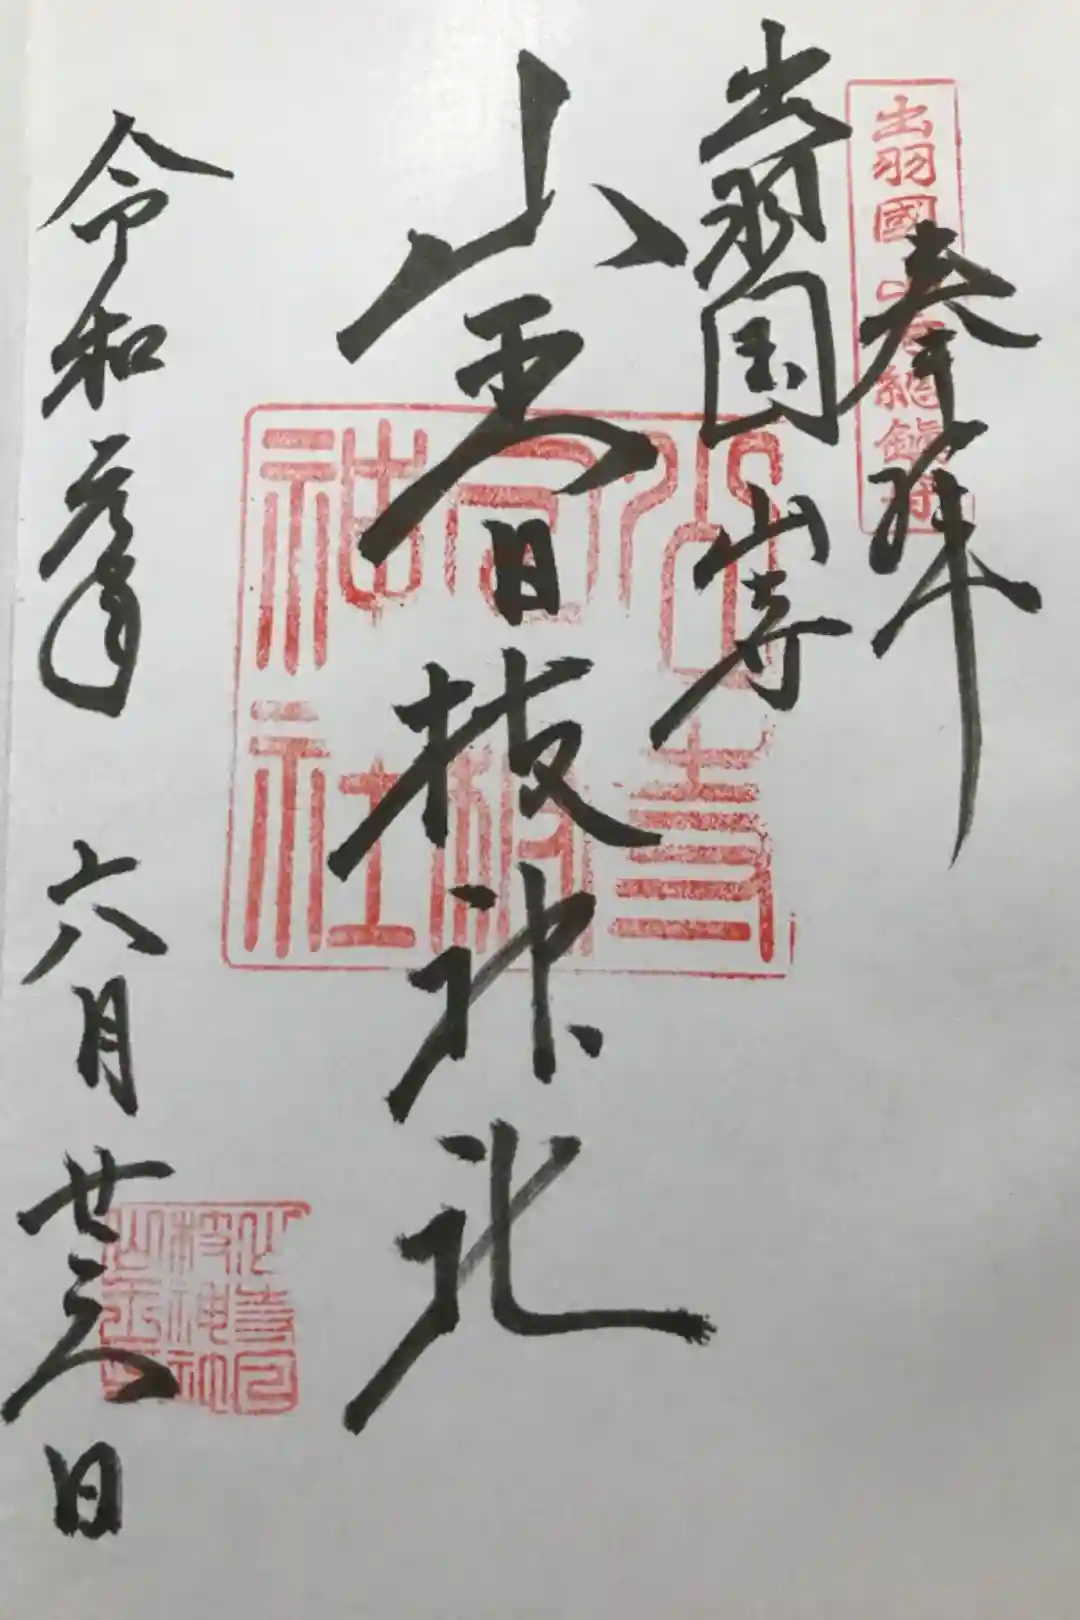 出羽國山寺総鎮守
奉拝
出羽国山寺
山王日枝神社
令和元年 六月廿三日
山寺
日枝
神社
山寺日
枝神社